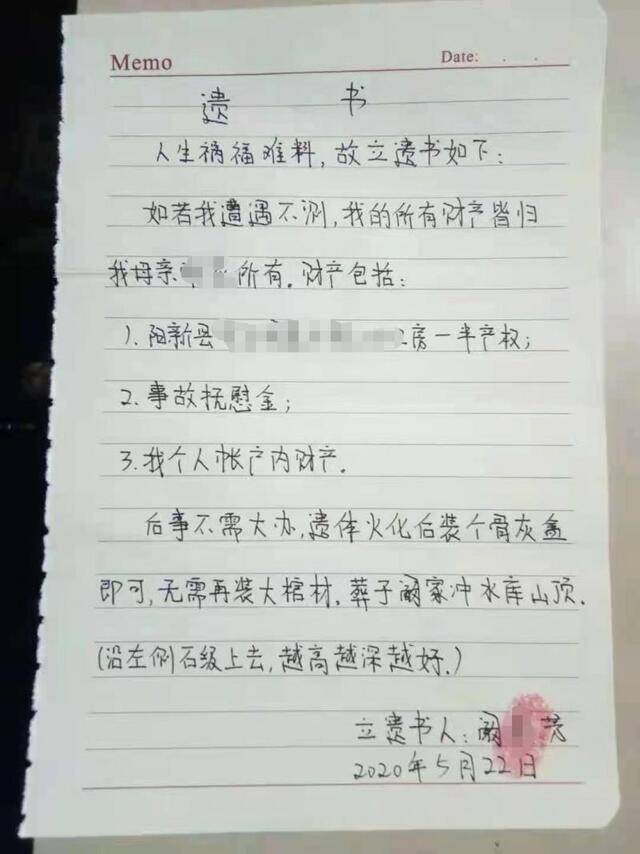 Memo Date: . .
遗 书
人生祸福难料,故立遗书如下:
如若我遭遇不测,我的所有财产皆归
我母亲 所有.财产包括:
1.阳新县 房一半产权;
2.事故抚慰金;
3.我个人帐户内财产.
后事不需大办,遗体火化后装个骨灰盒
即可,无需再装大棺材.葬于阚家冲水库山顶.
(沿左侧石级上去,越高越深越好.)
立遗书人:阚 芳
2020年5月22日